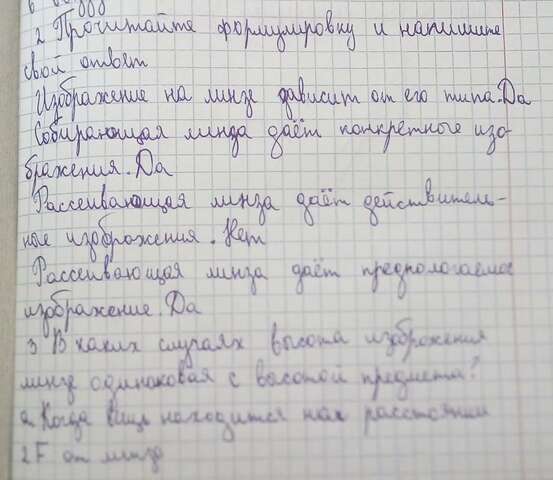 2 Прочитайте формулировку и напишите
свой ответ
Изображение на линзе зависит от его типа. Да
Собирающая линда даёт конкретные изо-
бражения. Да
Рассеивающая линза даёт действитель-
ные изображения. Нет
Рассеивающая линза даёт предпологаемое
изображение. Да
3 В каких случаях высота изображения
линзе одинаковая с высотой предмета?
а. Когда вещь находится на расстоянии
2F от линзе